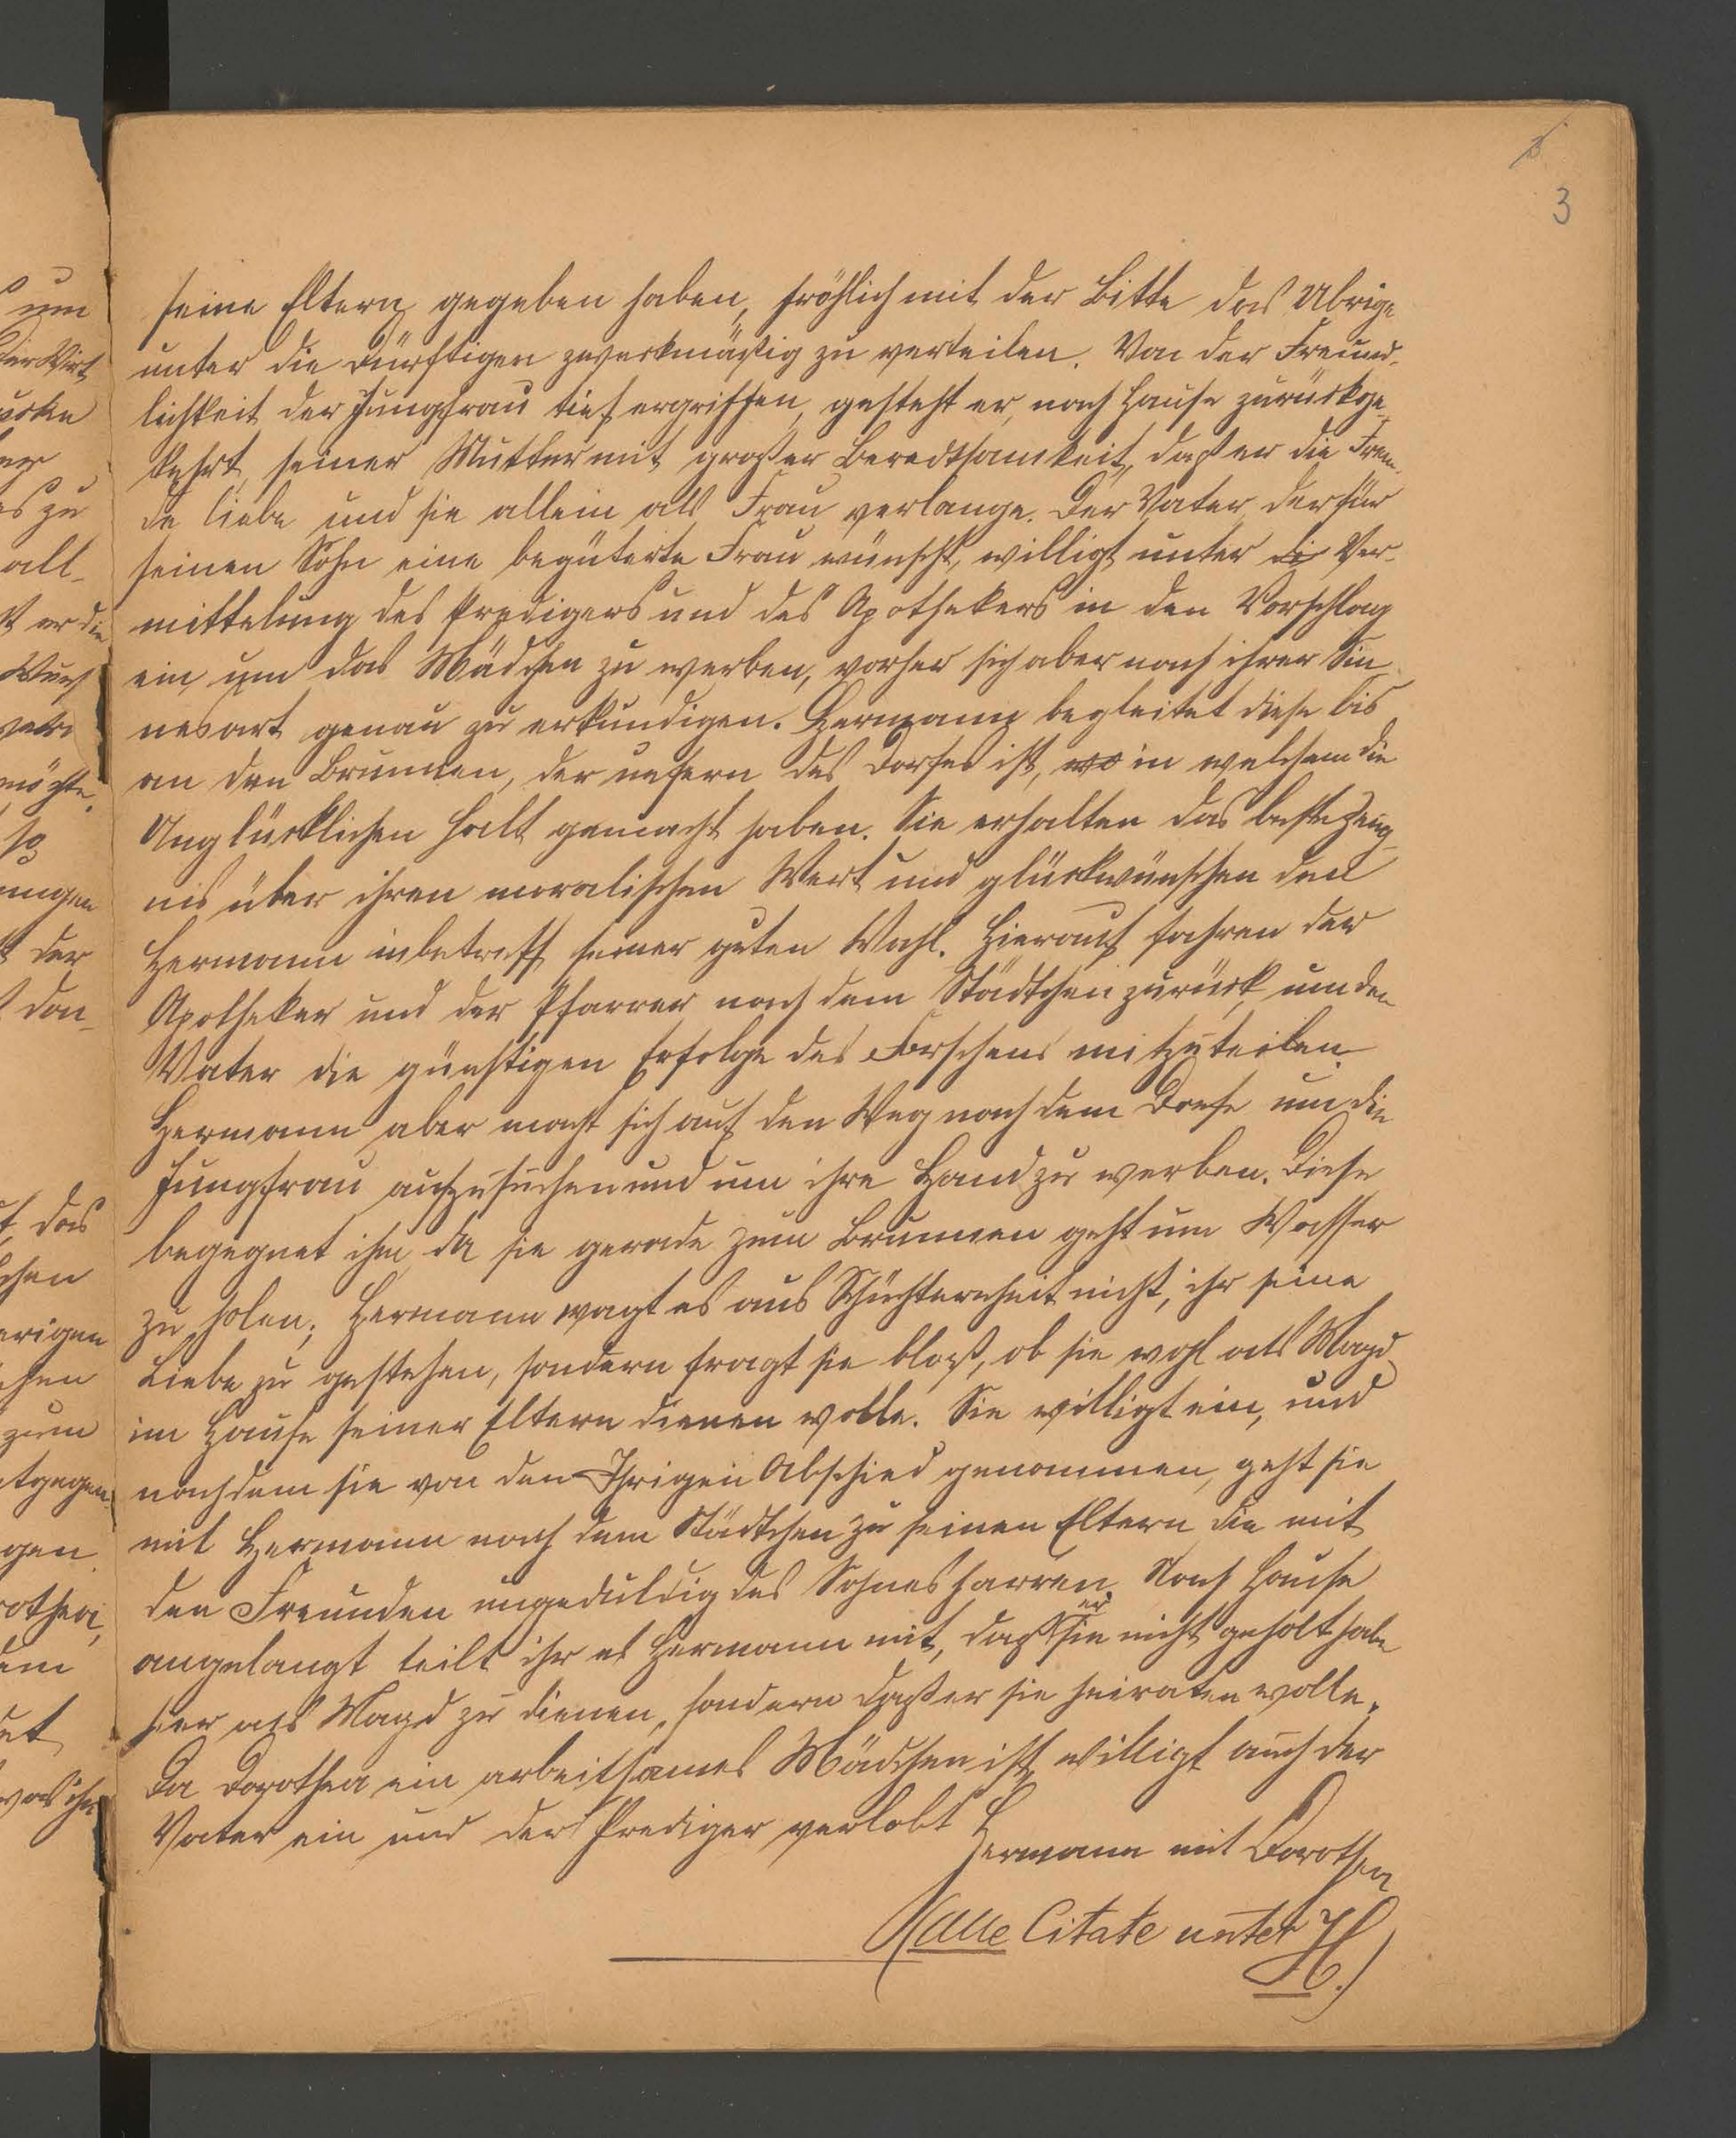 3
seine Eltern gegeben haben, fröhlich mit der Bitte das Übrige
unter die Dürftigen zweckmäßig zu verteilen. Von der Freund-
lichkeit der Jungfrau tief ergriffen, gesteht er, nach Hause zurückge-
kehrt, seiner Mutter mit großer Beredtsamkeit, daß er die Frem-
de liebe und sie allein als Frau verlange. Der Vater, der für
seinen Sohn eine begüterte Frau wünscht, willigt unter die Ver-
mittelung des Predigers und des Apothekers in den Vorschlag
ein, um das Mädchen zu werben, vorher sich aber nach ihrer Sin-
nesart genau zu erkundigen. Hermann begleitet diese bis
an den Brunnen, der unfern des Dorfes ist, wo in welchem die
Unglücklichen halt gemacht haben. Sie erhalten das beste Zeug-
nis über ihren moralischen Wert und glückwünschen den
Hermann inbetreff seiner guten Wahl. Hierauf fahren der
Apotheker und der Pfarrer nach dem Städtchen zurück, um den
Vater die günstigen Erfolge des Forschens mitzuteilen.
Hermann aber macht sich auf den Weg nach dem Dorfe um die
Jungfrau aufzusuchen und um ihre Hand zu werben. Diese
begegnet ihm, da sie gerade zum Brunnen geht um Wasser
zu holen; Hermann wagt es aus Schüchternheit nicht, ihr seine
Liebe zu gestehen, sondern fragt sie bloß, ob sie wohl als Magd
im Hause seiner Eltern dienen wolle. Sie willigt ein, und
nachdem sie von den Ihrigen Abschied genommen, geht sie
mit Hermann nach dem Städtchen zu seinen Eltern die mit
den Freunden ungeduldig des Sohnes harren. Nach Hause
angelangt teilt ihr es Hermann mit, daß er sie nicht geholt habe
hier als Magd zu dienen, sondern daß er sie heiraten wolle.
Da Dorothea ein arbeitsames Mädchen ist, willigt auch der
Vater ein und der Prediger verlobt Hermann mit Dorothea
(alle Citate unter H.)